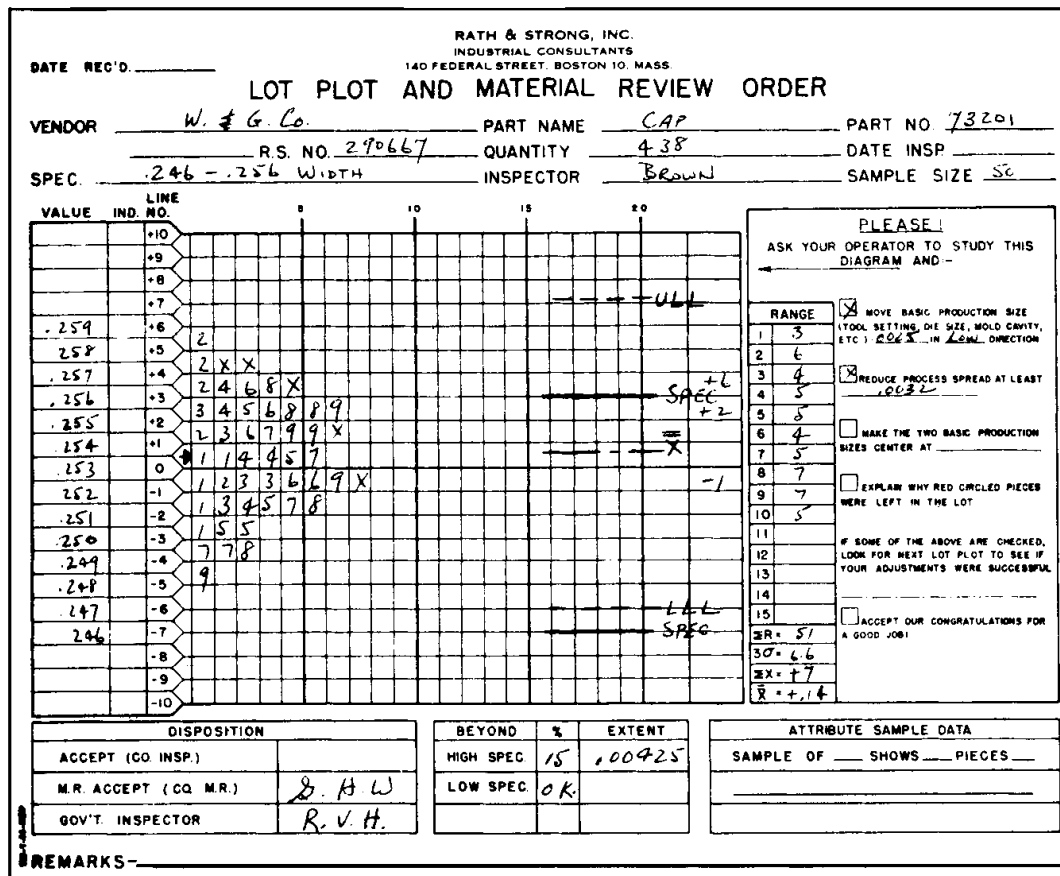 RATH & STRONG, INC.
INDUSTRIAL CONSULTANTS
DATE REC'D. 140 FEDERAL STREET, BOSTON 10, MASS.
LOT PLOT AND MATERIAL REVIEW ORDER
VENDOR W. & G. Co. PART NAME CAP PART NO. 73201
R.S. NO. 290667 QUANTITY 438 DATE INSP.
SPEC. .246 - .256 WIDTH INSPECTOR BROWN SAMPLE SIZE 50
VALUE IND. LINE NO. 5 10 15 20
+10
+9
+8
+7 ULL
.259 +6 2
258 +5 2 X X
.257 +4 2 4 6 8 X +6
.256 +3 SPEC
3 4 5 6 8 8 9 +2
.255 +2
2 3 6 7 9 9 X
.254 +1 X
1 1 4 4 5 7
.253 0
1 2 3 3 6 6 9 X -1
252 -1
1 3 4 5 7 8
.251 -2
1 5 5
.250 -3
7 7 8
.249 -4
9
.248 -5
.247 -6 LLL
246 -7 SPEC
-8
-9
-10
PLEASE!
ASK YOUR OPERATOR TO STUDY THIS
DIAGRAM AND-
RANGE
1 3
2 6
3 4
4 5
5 5
6 4
7 5
8 7
9 7
10 5
11
12
13
14
15
ΣR = 51
3σ = 6.6
ΣX = +7
X̄ = +.14
X MOVE BASIC PRODUCTION SIZE
(TOOL SETTING, DIE SIZE, MOLD CAVITY,
ETC.) .0065 IN LOW DIRECTION
X REDUCE PROCESS SPREAD AT LEAST
.0032
MAKE THE TWO BASIC PRODUCTION
SIZES CENTER AT
EXPLAIN WHY RED CIRCLED PIECES
WERE LEFT IN THE LOT
IF SOME OF THE ABOVE ARE CHECKED,
LOOK FOR NEXT LOT PLOT TO SEE IF
YOUR ADJUSTMENTS WERE SUCCESSFUL
ACCEPT OUR CONGRATULATIONS FOR
A GOOD JOB!
DISPOSITION
ACCEPT (CO. INSP.)
M.R. ACCEPT (CO. M.R.) S. H. W
GOV'T. INSPECTOR R. V. H.
BEYOND % EXTENT
HIGH SPEC. 15 .00425
LOW SPEC. OK.
ATTRIBUTE SAMPLE DATA
SAMPLE OF SHOWS PIECES
REMARKS-